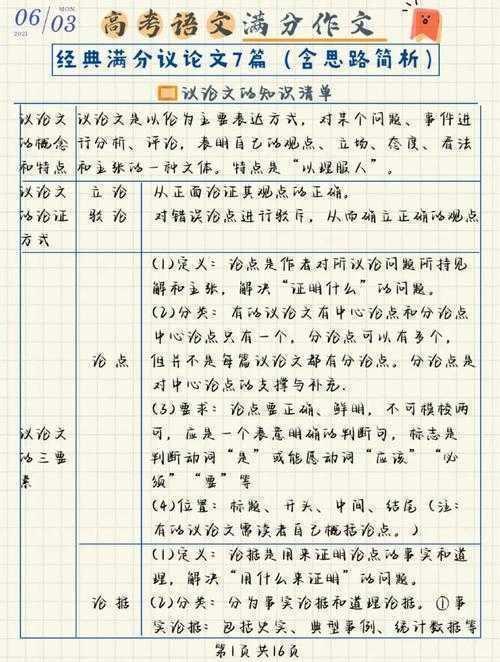 06/03
MON.
2021
高考语文满分作文
经典满分议论文7篇（含思路简析）
议论文的知识清单
议论文的概念和特点
议论文是以伦为主要表达方式，对某个问题、事件进行分析、评论，表明自己的观点、立场、态度、看法和主张的一种文体。特点是“以理服人”。
议论文的论证方式
立论
驳论
从正面论证其观点的正确。
对错误论点进行驳斥，从而确立正确的观点
议论文的三要素
论点
(1)定义：论点是作者对所议论问题所持见
解和主张，解决“证明什么”的问题。
(2)分类：有的议论文有中心论点和分论点
中心论点只有一个，分论点可以有多个，
但并不是每篇议论文都有分论点。分论点是
对中心论点的支撑与补充.
(3)要求：论点要正确、鲜明，不可模棱两
可，应是一个表意明确的判断句，标志是
判断动词“是”或能愿动词“应该”“必
须”“要”等
(4)位置：标题、开头、中间、结尾（注：
有的议论文需读者自己概括论点。）
论据
(1)定义：论据是用来证明论点的事实和道
理，解决“用什么来证明”的问题。
(2)分类：分为事实论据和道理论据。①事
实论据：包括史实、典型事例、统计数据等
第1页 共16页